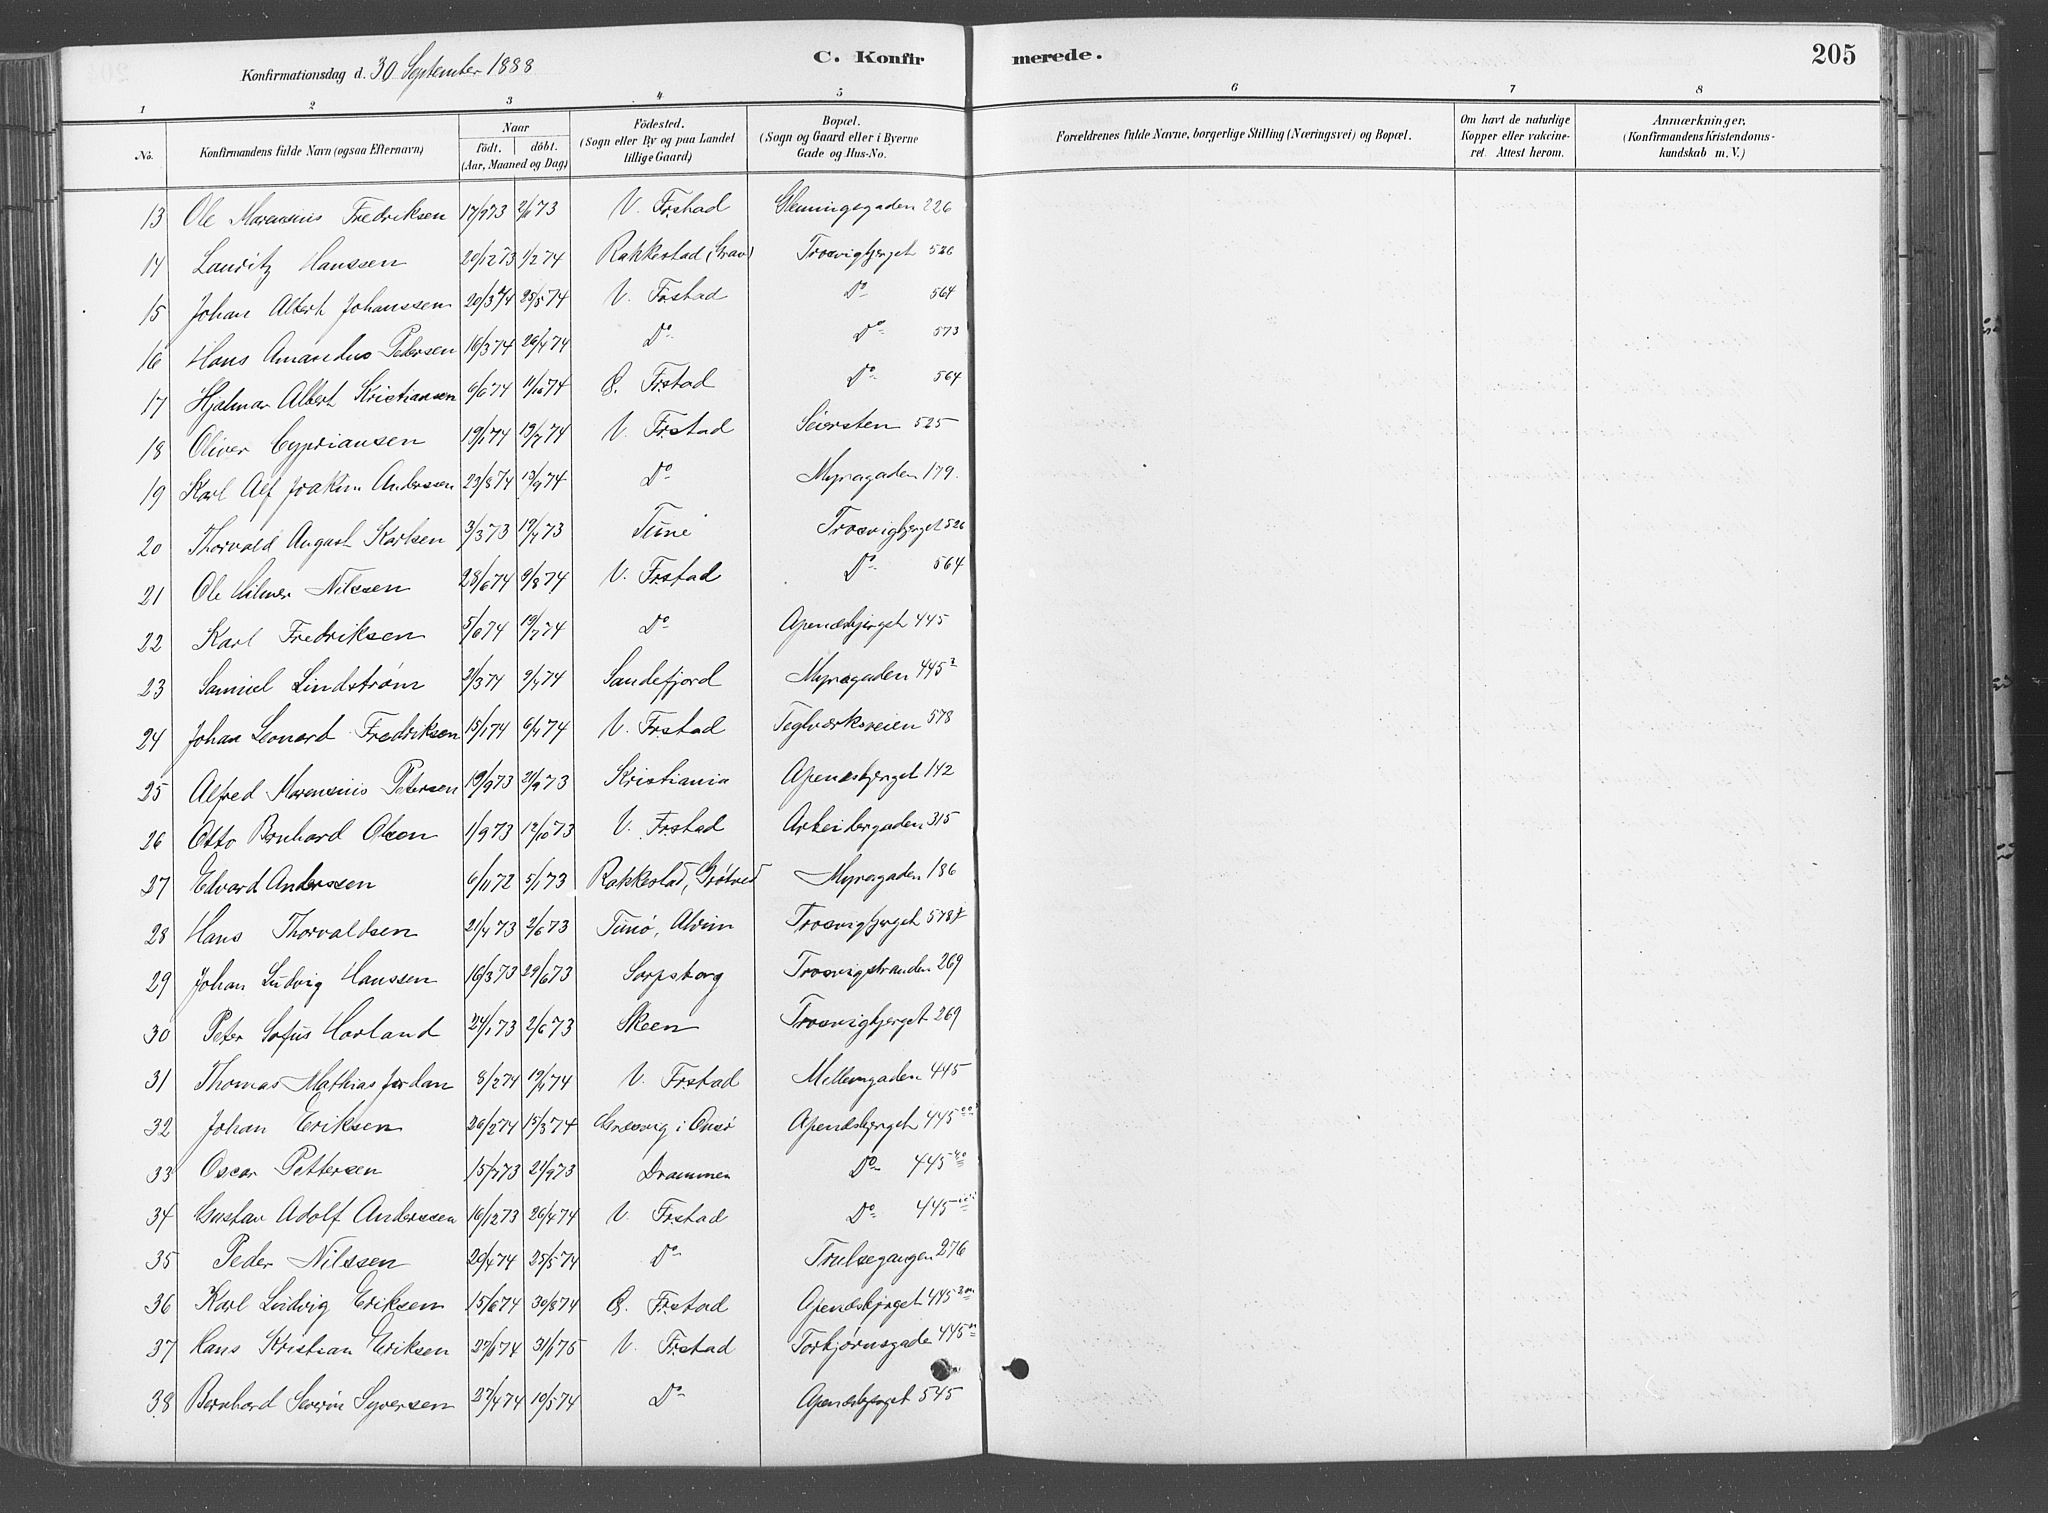 Konfirmationsdag d. 30 September 1888 C. Konfirmerede. 205
1 2 3 4 5 6 7 8
No. Konfirmandens fulde Navn (ogsaa Efternavn) Naar födt. döbt. (Aar, Maaned og Dag) Födested. (Sogn eller By og paa Landet tillige Gaard) Bopæl. (Sogn og Gaard eller i Byerne Gade og Hus-No. Forældrenes fulde Navne, borgerlige Stilling (Næringsvei) og Bopæl. Om havt de naturlige Kopper eller vakcineret. Attest herom. Anmærkninger, (Konfirmandens Kristendomskundskab m. V.)
13 Ole Marensius Fredriksen 17/973 2/673 V. Frstad Glemmingegaden 226
14 Lauritz Hanssen 20/1273 1/274 Rakkestad (Grav) Trosvigbjerget 526
15 Johan Albert Johanssen 20/374 25/574 V. Frstad Do 564
16 Hans Amandus Pedersen 16/374 26/474 Do Do 573
17 Hjalmar Albert Kristiansen 6/674 11/1074 Ø. Frstad Do 564
18 Oliver Cyprianssen 19/174 19/774 V. Frstad Seiersten 525
19 Karl Alf Joakim Anderssen 23/874 13/974 Do Myragaden 179.
20 Thorvald August Karlsen 3/373 19/473 Tune Trosvigbjerget 526
21 Ole Hilmer Nilssen 28/674 9/874 V. Frstad Do 564
22 Karl Fredriksen 5/674 19/774 Do Apenæsbjerget 445
23 Samuel Lindstrøm 2/374 9/474 Sandefjord Myragaden 445
24 Johan Leonard Fredriksen 15/174 6/474 V. Frstad Teglværksveien 578
25 Alfred Marensius Petersen 19/973 21/973 Kristiania Apenæsbjerget 142
26 Otto Bernhard Olsen 1/973 12/1073 V. Frstad Arbeidergaden 315
27 Edvard Anderssen 6/1172 5/173 Rakkestad, Grøtved Myragaden 186
28 Hans Thorvaldsen 21/473 2/673 Tunø, Alvim Trosvigbjerget 578
29 Johan Ludvig Hanssen 16/373 29/673 Sarpsborg Trosvigstranden 269
30 Peter Sofus Harland 24/173 2/673 Skeen Trosvigbjerget 269
31 Thomas Mathias Jordan 8/274 19/474 V. Frstad Mellemgaden 445
32 Johan Eriksen 26/274 15/374 Græsvig i Onsø Apenæsbjerget 445
33 Oscar Pettersen 15/773 21/973 Drammen Do 445
34 Gustav Adolf Anderssen 16/1273 26/474 V. Frstad Do 445
35 Peder Nilssen 20/474 25/574 Do Trulsegangen 276
36 Karl Ludvig Eriksen 15/674 30/874 Ø. Frstad Apenæsbjerget 445
37 Hans Kristian Eriksen 27/674 31/175 V. Frstad Torbjørnsgade 445
38 Bernhard Severin Syversen 27/474 10/574 Do Apenæsbjerget 545